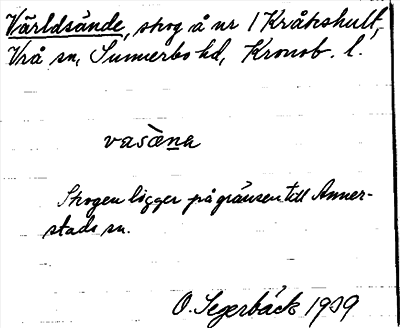 Världsände, skog å nr 1 Kråkshult,
Vrå sn, Sunnerbo hd, Kronob. l.
vasὰna
Skogen ligger på gränsen till Anner-
stads sn.
O. Segerbäck 1939